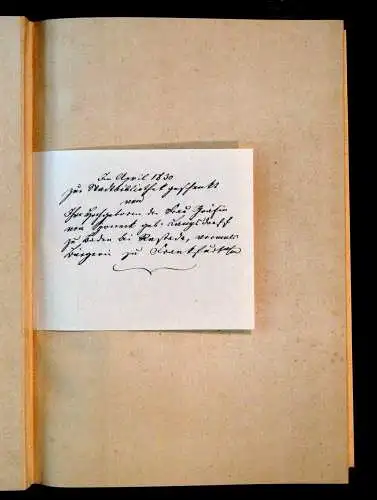 Im April 1830
zur Stadtbibliothek geschenkt
von
Ihro Hochgeboren der Frau Gräfin
von Sponeck geb. Langsdorff
zu Baden bei Rastadt, vormals
Bürgerin zu Frankfurt